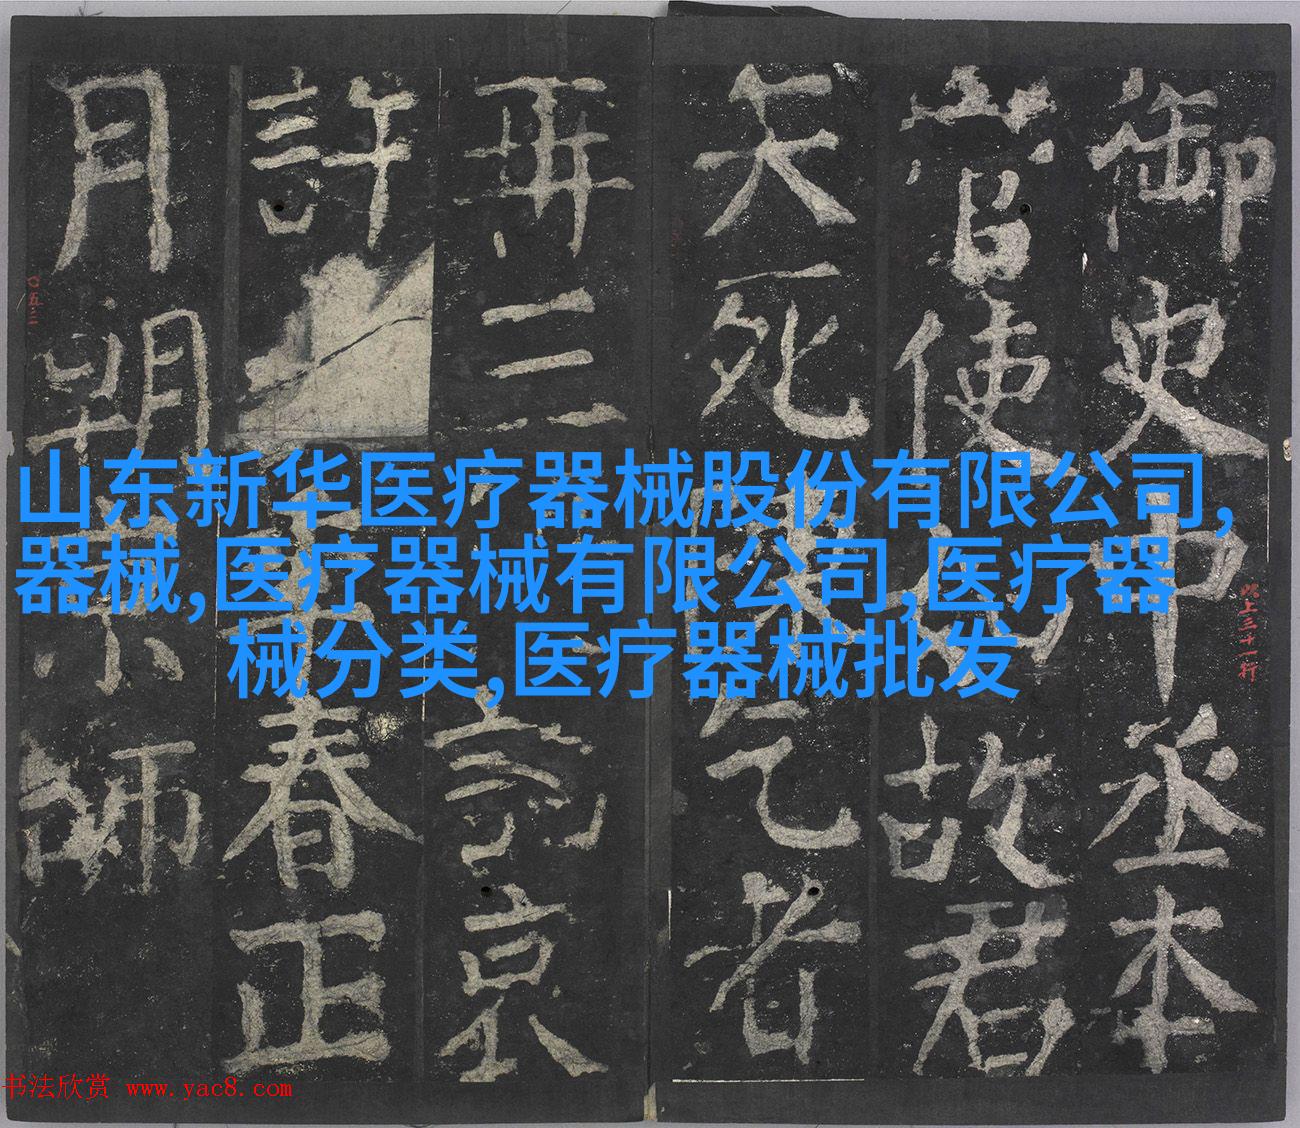 御史中丞本
當使故君
矢死乞者
再三京
許春正
月朔京師
此上三十一行
〇五三
山东新华医疗器械股份有限公司,
器械,医疗器械有限公司,医疗器
械分类,医疗器械批发
书法欣赏 www.yac8.com